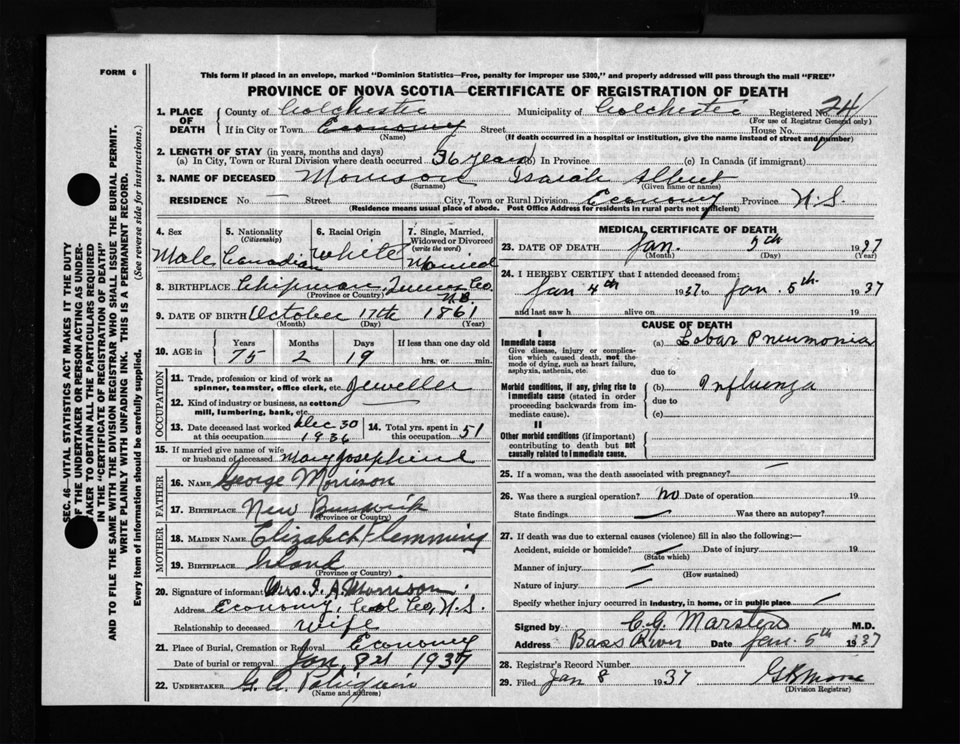 FORM 6
This form if placed in an envelope, marked "Dominion Statistics—Free, penalty for improper use $300," and properly addressed will pass through the mail "FREE"
PROVINCE OF NOVA SCOTIA—CERTIFICATE OF REGISTRATION OF DEATH
SEC. 46—VITAL STATISTICS ACT MAKES IT THE DUTY
OF THE UNDERTAKER OR PERSON ACTING AS UNDER-
TAKER TO OBTAIN ALL THE PARTICULARS REQUIRED
IN THE "CERTIFICATE OF REGISTRATION OF DEATH"
AND TO FILE THE SAME WITH THE DIVISION REGISTRAR WHO SHALL ISSUE THE BURIAL PERMIT.
WRITE PLAINLY WITH UNFADING INK. THIS IS A PERMANENT RECORD.
Every item of information should be carefully supplied. (See reverse side for instructions.)
1. PLACE OF DEATH County of Colchester Municipality of Colchester Registered No. 24
(For use of Registrar General only)
If in City or Town Economy Street House No.
(Name) (If death occurred in a hospital or institution, give the name instead of street and number)
2. LENGTH OF STAY (in years, months and days)
(a) In City, Town or Rural Division where death occurred 36 years (b) In Province (c) In Canada (if immigrant)
3. NAME OF DECEASED Morrison Isaiah Albert
(Surname) (Given name or names)
RESIDENCE No. Street City, Town or Rural Division Economy Province N.S.
(Residence means usual place of abode. Post Office Address for residents in rural parts not sufficient)
4. Sex 5. Nationality (Citizenship) 6. Racial Origin 7. Single, Married, Widowed or Divorced (write the word)
Male Canadian White Married
8. BIRTHPLACE Chipman, Queens Co. N.B.
(Province or Country)
9. DATE OF BIRTH October 17th 1861
(Month) (Day) (Year)
10. AGE in Years Months Days If less than one day old
75 2 19 hrs. or min.
OCCUPATION
11. Trade, profession or kind of work as spinner, teamster, office clerk, etc. Jeweller
12. Kind of industry or business, as cotton mill, lumbering, bank, etc.
13. Date deceased last worked at this occupation Dec 30 1936 14. Total yrs. spent in this occupation 51
15. If married give name of wife or husband of deceased Mary Josephine
FATHER
16. NAME George Morrison
17. BIRTHPLACE New Brunswick
(Province or Country)
MOTHER
18. MAIDEN NAME Elizabeth Flemming
19. BIRTHPLACE Ireland
(Province or Country)
20. Signature of informant Mrs. I. A. Morrison
Address Economy, Col Co, N.S.
Relationship to deceased wife
21. Place of Burial, Cremation or Removal Economy
Date of burial or removal Jan. 8th 1937
22. UNDERTAKER G. A.
(Name and address)
MEDICAL CERTIFICATE OF DEATH
23. DATE OF DEATH Jan. 5th 1937
(Month) (Day) (Year)
24. I HEREBY CERTIFY that I attended deceased from:
Jan 4th 1937 to Jan. 5th 1937
and last saw h alive on 19
CAUSE OF DEATH
I
Immediate cause
Give disease, injury or complication which caused death, not the mode of dying, such as heart failure, asphyxia, asthenia, etc.
(a) Lobar Pneumonia
due to
Morbid conditions, if any, giving rise to immediate cause (stated in order proceeding backwards from immediate cause).
(b) Influenza
due to
(c)
II
Other morbid conditions (if important) contributing to death but not causally related to immediate cause.
25. If a woman, was the death associated with pregnancy? —
26. Was there a surgical operation? no Date of operation 19
State findings — Was there an autopsy?
27. If death was due to external causes (violence) fill in also the following:—
Accident, suicide or homicide? — Date of injury 19
(State which)
Manner of injury —
(How sustained)
Nature of injury —
Specify whether injury occurred in industry, in home, or in public place —
Signed by C. G. Marsters M.D.
Address Bass River Date Jan. 5th 1937
28. Registrar's Record Number
29. Filed Jan 8 1937
(Division Registrar)